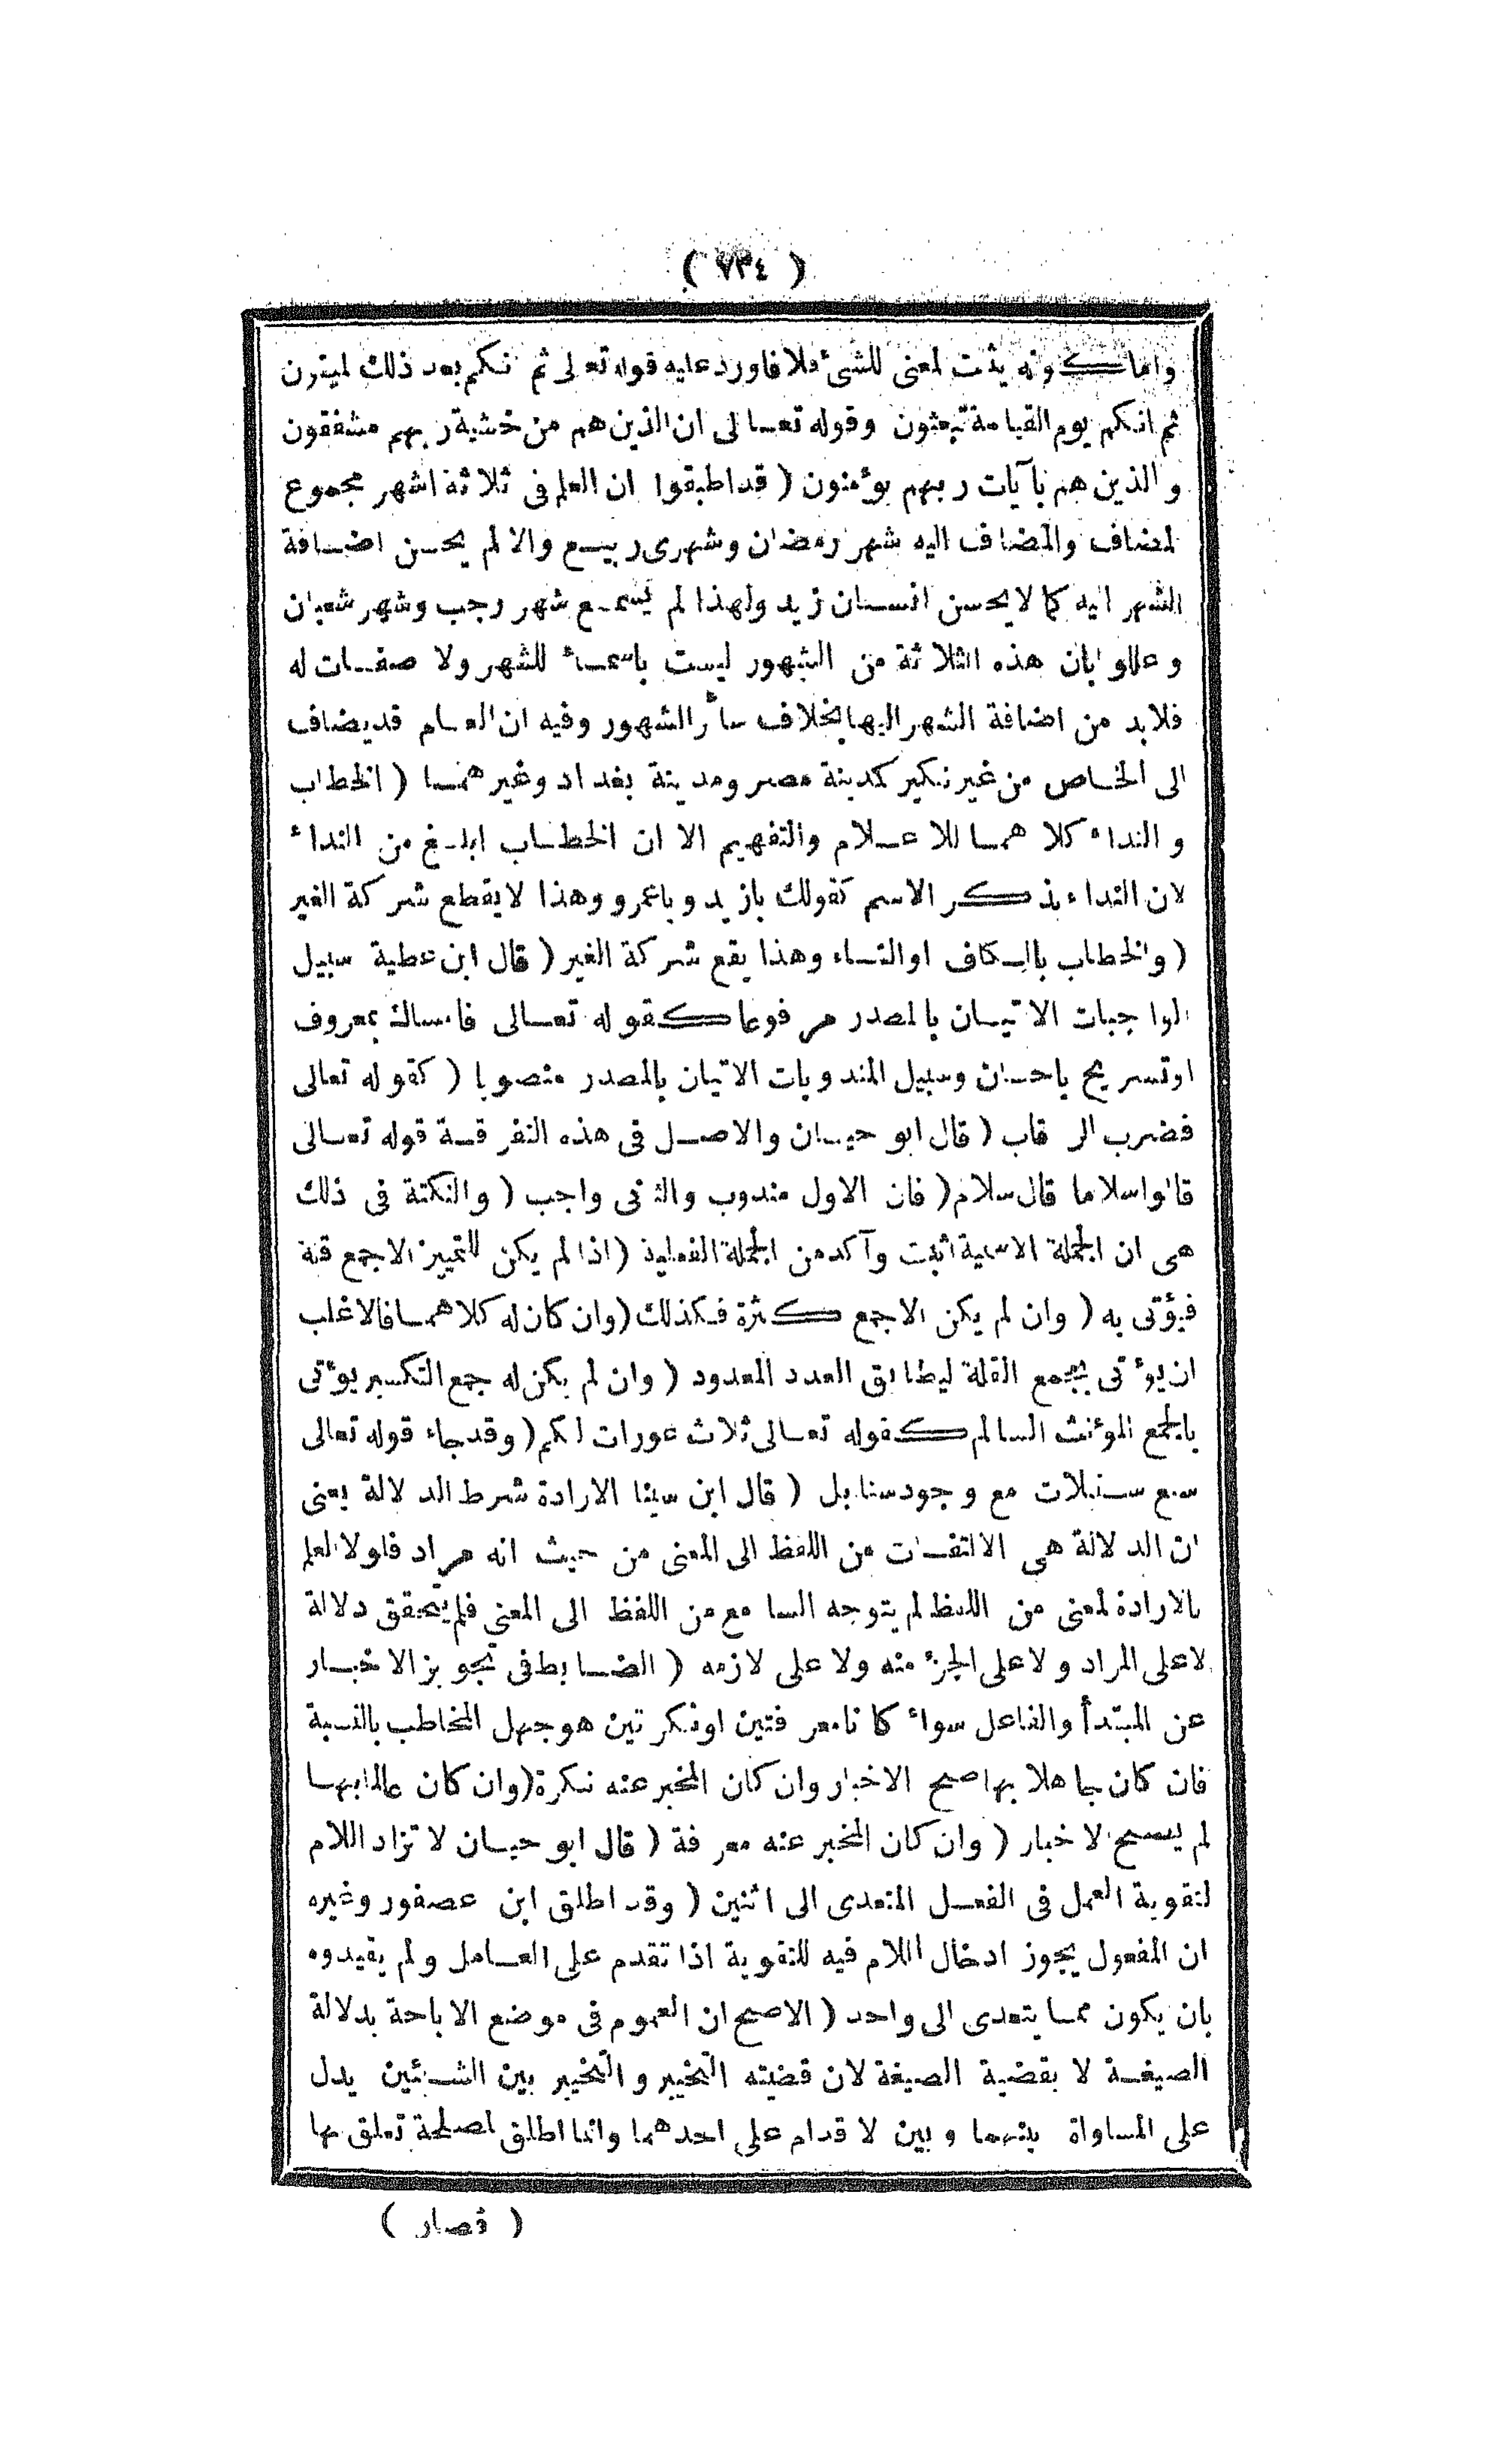 ( ٧٣٤ )
واما كونه يثبت لمعنى للشئ فلا فاورد عليه قوله تعالى ثم انكم بعد ذلك لميتون
ثم انكم يوم القيامة تبعثون وقوله تعالى ان الذين هم من خشية ربهم مشفقون
والذين هم بآيات ربهم يؤمنون ( قد اطبقوا ان العلم فى ثلاثة اشهر مجموع
المضاف والمضاف اليه شهر رمضان وشهرى ربيع والا لم يحسن اضافة
الشهر اليه كما لا يحسن انسان زيد ولهذا لم يسمع شهر رجب وشهر شعبان
وعللوا بان هذه الثلاثة من الشهور ليست باسماء للشهر ولا صفات له
فلا بد من اضافة الشهر اليها بخلاف سائر الشهور وفيه ان العام قد يضاف
الى الخاص من غير نكير كمدينة مصر ومدينة بغداد وغيرهما ( الخطاب
والنداء كلاهما للاعلام والتفهيم الا ان الخطاب ابلغ من النداء
لان النداء بذكر الاسم كقولك يازيد وياعمرو وهذا لا يقطع شركة الغير
( والخطاب بالكاف او التاء وهذا يقع شركة الغير ( قال ابن عطية سبيل
الواجبات الاتيان بالمصدر مرفوعا كقوله تعالى فامساك بمعروف
او تسريح باحسان وسبيل المندوبات الاتيان بالمصدر منصوبا ( كقوله تعالى
فضرب الرقاب ( قال ابو حيان والاصل فى هذه التفرقة قوله تعالى
قالوا سلاما قال سلام ( فان الاول مندوب والثانى واجب ( والنكتة فى ذلك
هى ان الجملة الاسمية اثبت وآكد من الجملة الفعلية ( اذا لم يكن للتمييز الاجمع قلة
فيؤتى به ( وان لم يكن الاجمع كثرة فكذلك ( وان كان له كلاهما فالاغلب
ان يؤتى بجمع القلة ليطابق العدد المعدود ( وان لم يكن له جمع التكسير يؤتى
بالجمع المؤنث السالم كقوله تعالى ثلاث عورات لكم ( وقد جاء قوله تعالى
سبع سنبلات مع وجود سنابل ( قال ابن سينا الارادة شرط الدلالة يعنى
ان الدلالة هى الالتفات من اللفظ الى المعنى من حيث انه مراد فلولا العلم
بالارادة لمعنى من اللفظ لم يتوجه السامع من اللفظ الى المعنى فلم يتحقق دلالة
لا على المراد ولا على الجزء منه ولا على لازمه ( الضابط فى تجويز الاخبار
عن المبتدأ والفاعل سواء كانا معرفتين او نكرتين هو جهل المخاطب بالنسبة
فان كان جاهلا بها صح الاخبار وان كان المخبر عنه نكرة ( وان كان عالما بها
لم يصح الاخبار ( وان كان المخبر عنه معرفة ( قال ابو حيان لا تزاد اللام
لتقوية العمل فى الفعل المتعدى الى اثنين ( وقد اطلق ابن عصفور وغيره
ان المفعول يجوز ادخال اللام فيه للتقوية اذا تقدم على العامل ولم يقيدوه
بان يكون مما يتعدى الى واحد ( الاصح ان العموم فى موضع الاباحة بدلالة
الصيغة لا بقضية الصيغة لان قضيته التخيير والتخيير بين الشيئين يدل
على المساواة بينهما وبين الاقدام على احدهما وانما اطلق لمصلحة تعلق بها
( فصار )